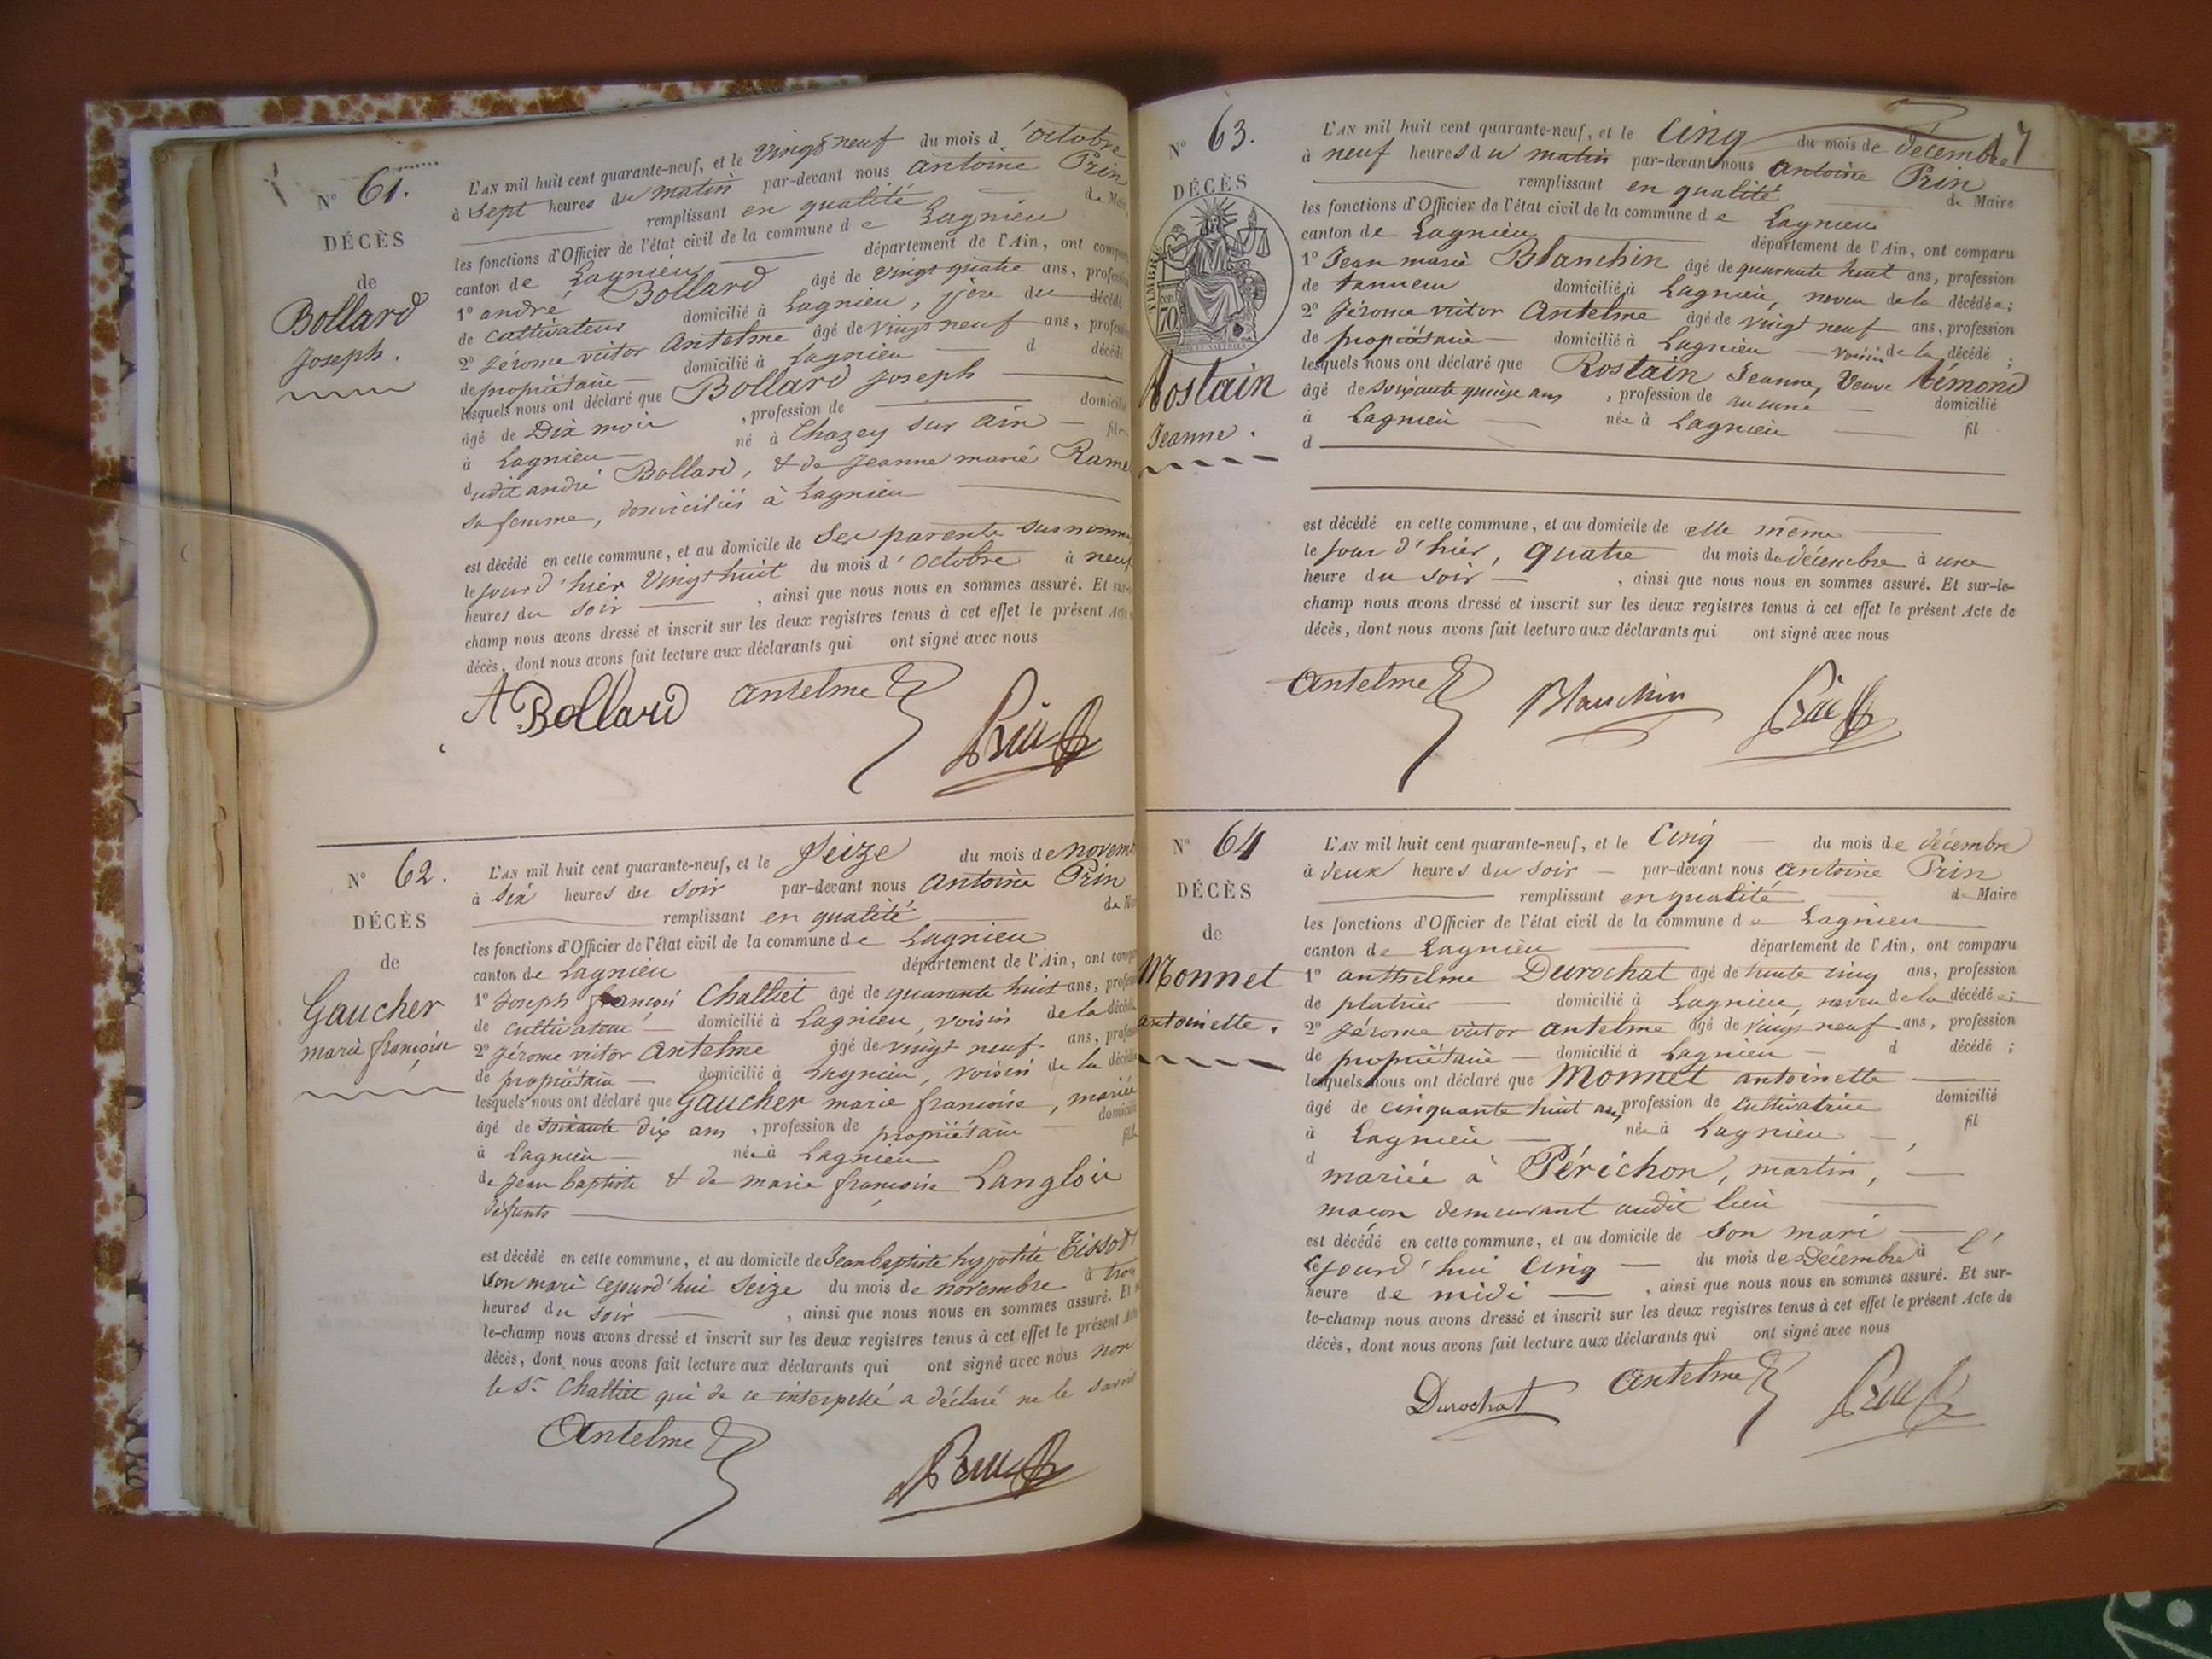 N° 61.
DÉCÈS
de
Bollard
Joseph.
L'AN mil huit cent quarante-neuf, et le vingt neuf du mois d'octobre
à sept heures du matin par-devant nous antoine Prin
remplissant en qualité de Maire
les fonctions d'Officier de l'état civil de la commune de Lagnieu
canton de Lagnieu département de l'Ain, ont
1° andré Bollard âgé de vingt quatre ans,
de cultivateur domicilié à Lagnieu, père du décédé
2° Jérome victor Antelme âgé de vingt neuf ans,
de propriétaire domicilié à Lagnieu d décédé
lesquels nous ont déclaré que Bollard Joseph
âgé de Dix mois , profession de
à Lagnieu né à Chazey sur Ain
dudit andré Bollard, & de Jeanne marie
sa femme, domiciliés à Lagnieu
est décédé en cette commune, et au domicile de ses parents
le jour d'hier vingt huit du mois d'octobre à neuf
heures du soir , ainsi que nous nous en sommes assuré. Et
champ nous avons dressé et inscrit sur les deux registres tenus à cet effet le présent
décès, dont nous avons fait lecture aux déclarants qui ont signé avec nous
A Bollard antelme Prin
N° 62.
DÉCÈS
de
Gaucher
marie françoise
L'AN mil huit cent quarante-neuf, et le Seize du mois de
à six heures du soir par-devant nous Antoine Prin
remplissant en qualité de
les fonctions d'Officier de l'état civil de la commune de Lagnieu
canton de Lagnieu département de l'Ain, ont
1° Joseph françois Challiet âgé de quarante huit ans,
de cultivateur domicilié à Lagnieu, voisin de la
2° Jérome victor Antelme âgé de vingt neuf ans,
de propriétaire domicilié à Lagnieu, voisin de la
lesquels nous ont déclaré que Gaucher marie françoise, mariée
âgé de soixante dix ans , profession de propriétaire
à Lagnieu née à Lagnieu
de Jean baptiste & de marie françoise Langlois
défunts
est décédé en cette commune, et au domicile de Jean baptiste hyppolite Tissot
son mari cejourd'hui seize du mois de novembre à
heures du soir , ainsi que nous nous en sommes assuré. Et
le-champ nous avons dressé et inscrit sur les deux registres tenus à cet effet le présent
décès, dont nous avons fait lecture aux déclarants qui ont signé avec nous non
le Sr Challiet qui de ce interpellé a déclaré ne le
Antelme Prin
17
N° 63.
DÉCÈS
TIMBRE
70
Rostain
Jeanne.
L'AN mil huit cent quarante-neuf, et le Cinq du mois de décembre
à neuf heures du matin par-devant nous antoine Prin
remplissant en qualité de Maire
les fonctions d'Officier de l'état civil de la commune de Lagnieu
canton de Lagnieu département de l'Ain, ont comparu
1° Jean marie Blanchin âgé de quarante huit ans, profession
de tanneur domicilié à Lagnieu, neveu de la décédée;
2° Jérome victor Antelme âgé de vingt neuf ans, profession
de propriétaire domicilié à Lagnieu voisin de la décédé ;
lesquels nous ont déclaré que Rostain Jeanne, Veuve Rémond
âgé de soixante quinze ans , profession de aucune domicilié
à Lagnieu née à Lagnieu fil
d
est décédé en cette commune, et au domicile de elle même
le jour d'hier, quatre du mois de décembre à une
heure du soir , ainsi que nous nous en sommes assuré. Et sur-le-
champ nous avons dressé et inscrit sur les deux registres tenus à cet effet le présent Acte de
décès, dont nous avons fait lecture aux déclarants qui ont signé avec nous
Antelme Blanchin Prin
N° 64
DÉCÈS
de
Monnet
antoinette.
L'AN mil huit cent quarante-neuf, et le Cinq du mois de décembre
à deux heures du soir par-devant nous antoine Prin
remplissant en qualité de Maire
les fonctions d'Officier de l'état civil de la commune de Lagnieu
canton de Lagnieu département de l'Ain, ont comparu
1° anthelme Durochat âgé de trente cinq ans, profession
de platrier domicilié à Lagnieu, neveu de la décédée;
2° Jérome victor antelme âgé de vingt neuf ans, profession
de propriétaire domicilié à Lagnieu d décédé ;
lesquels nous ont déclaré que Monnet antoinette
âgé de cinquante huit ans, profession de cultivatrice domicilié
à Lagnieu née à Lagnieu , fil
d mariée à Périchon, martin,
maçon demeurant audit lieu
est décédé en cette commune, et au domicile de son mari
cejourd'hui cinq du mois de Décembre à l'
heure de midi , ainsi que nous nous en sommes assuré. Et sur-
le-champ nous avons dressé et inscrit sur les deux registres tenus à cet effet le présent Acte de
décès, dont nous avons fait lecture aux déclarants qui ont signé avec nous
Durochat Antelme Prin